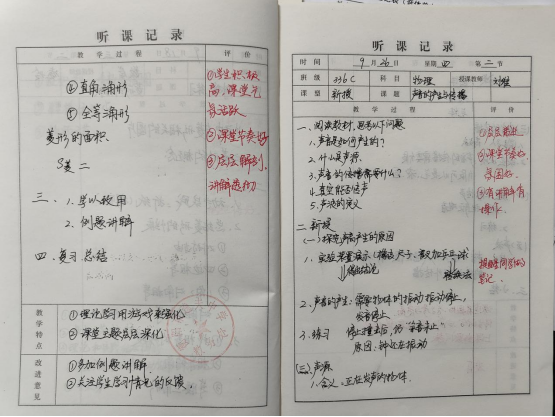 听课记录
教学过程 评价
④直角三角形
⑤全等三角形
菱形的面积
三、1.学以致用
2.例题讲解
四、复习总结
①学生积极性
高,课堂气
氛活跃
②课堂节奏好
③层层解剖,
讲解透彻
教学特点
①理论学习用游戏来强化
②课堂主题层层深化
改进意见
①多加例题讲解
②关注学生学习情况的反馈.
听课记录
时间 9月26日 星期四 第二节
班级 336C 科目 物理 授课教师
课型 新授 课题 声音的产生与传播
教学过程 评价
一、阅读教材,思考以下问题
1.声音是如何产生的?
2.什么是声源
3.声音的传播需要什么?
4.真空能否传声
5.声波的定义
二、新授
(一)探究声音产生的原因
1.实验装置展示
得出结论 转换法
2.声音的产生:需要物体的振动,振动停止,
发音停止
3.练习 停止撞击后,仍“余音未止”
原因:钟还在振动
(二)声源
1.含义:正在发声的物体.
②课堂节奏
③有讲解有
操作
提醒同学们的
笔记